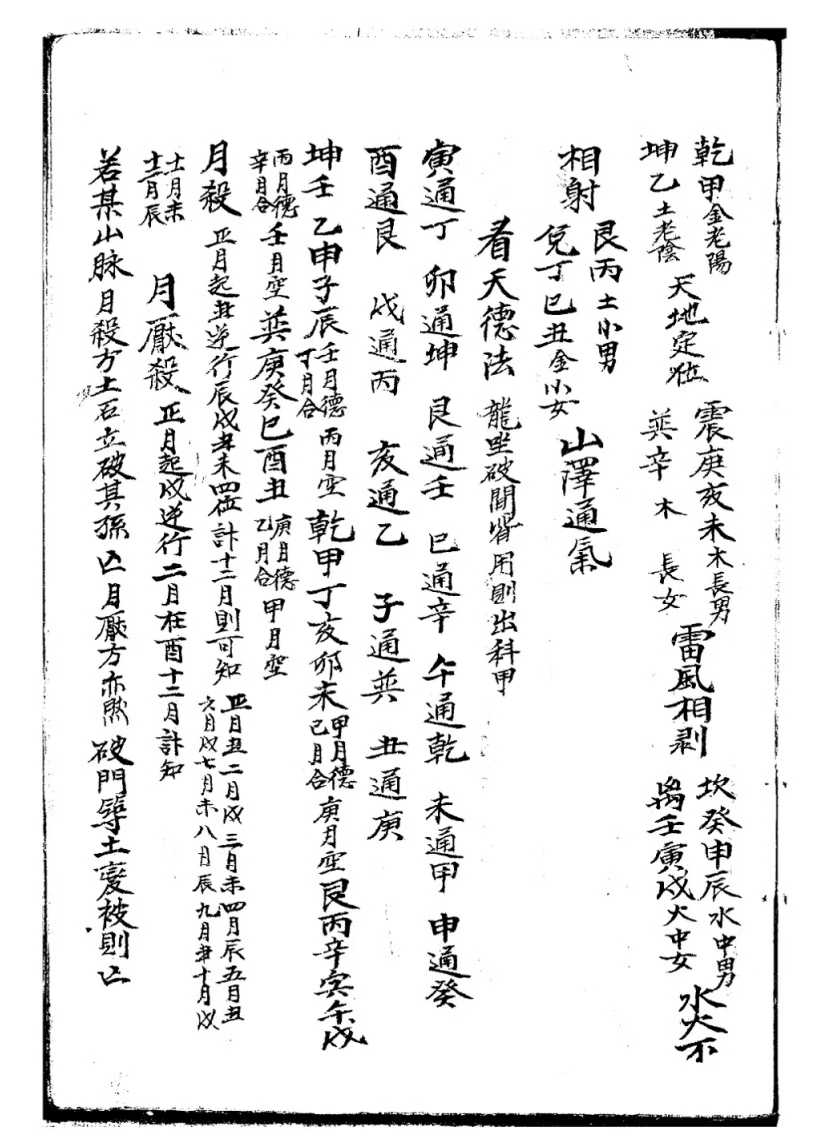 乾甲金老陽
坤乙土老陰
天地定位
震庚亥未木長男
巽辛木長女
雷風相剥
坎癸申辰水中男
离壬寅戌火中女
水火不
相射
艮丙土小男
兌丁巳丑金小女
山澤通氣
看天德法 龍坐破開皆用則出科甲
寅通丁 卯通坤 艮通壬 巳通辛 午通乾 未通甲 申通癸
酉通艮 戌通丙 亥通乙 子通巽 丑通庚
坤壬乙申子辰 壬月德 丁月合 丙月空 乾甲丁亥卯未 甲月德 己月合 庚月空 艮丙辛寅午戌
丙月德 辛月合 壬月空 巽庚癸巳酉丑 庚月德 乙月合 甲月空
月殺 正月起丑逆行辰戌丑未四位計十二月則可知 正月丑二月戌三月未四月辰五月丑
六月戌七月未八月辰九月丑十月戌
十一月未
十二月辰
月厭殺 正月起戌逆行二月在酉十二月計知
若某山脉月殺方土石立破其孫亡月厭方亦然破門築土変被則亡